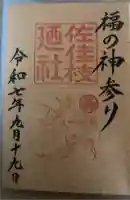 福の神参り
佐佳枝廼社
令和七年九月十九日